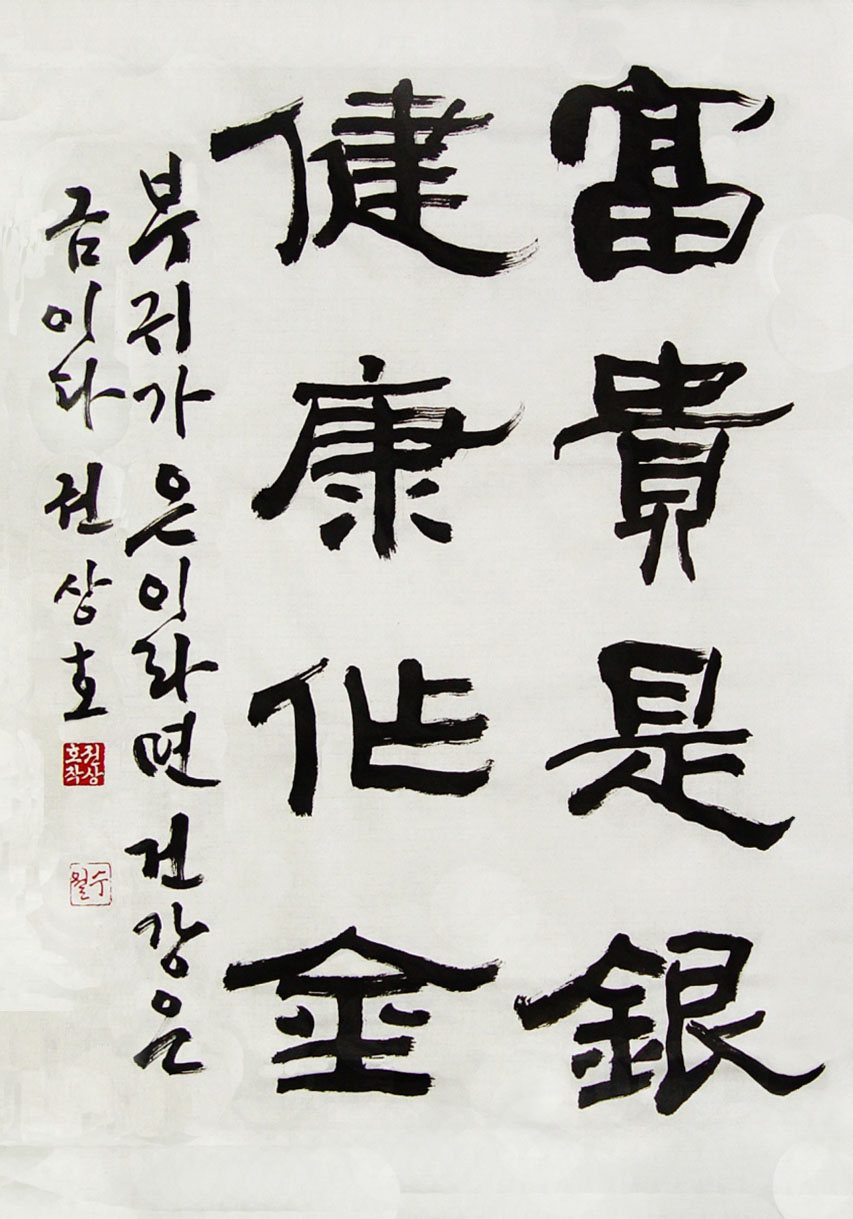 富貴是銀
健康作金
부귀가 은이라면 건강은
금이다 권상호
권상호작
수월